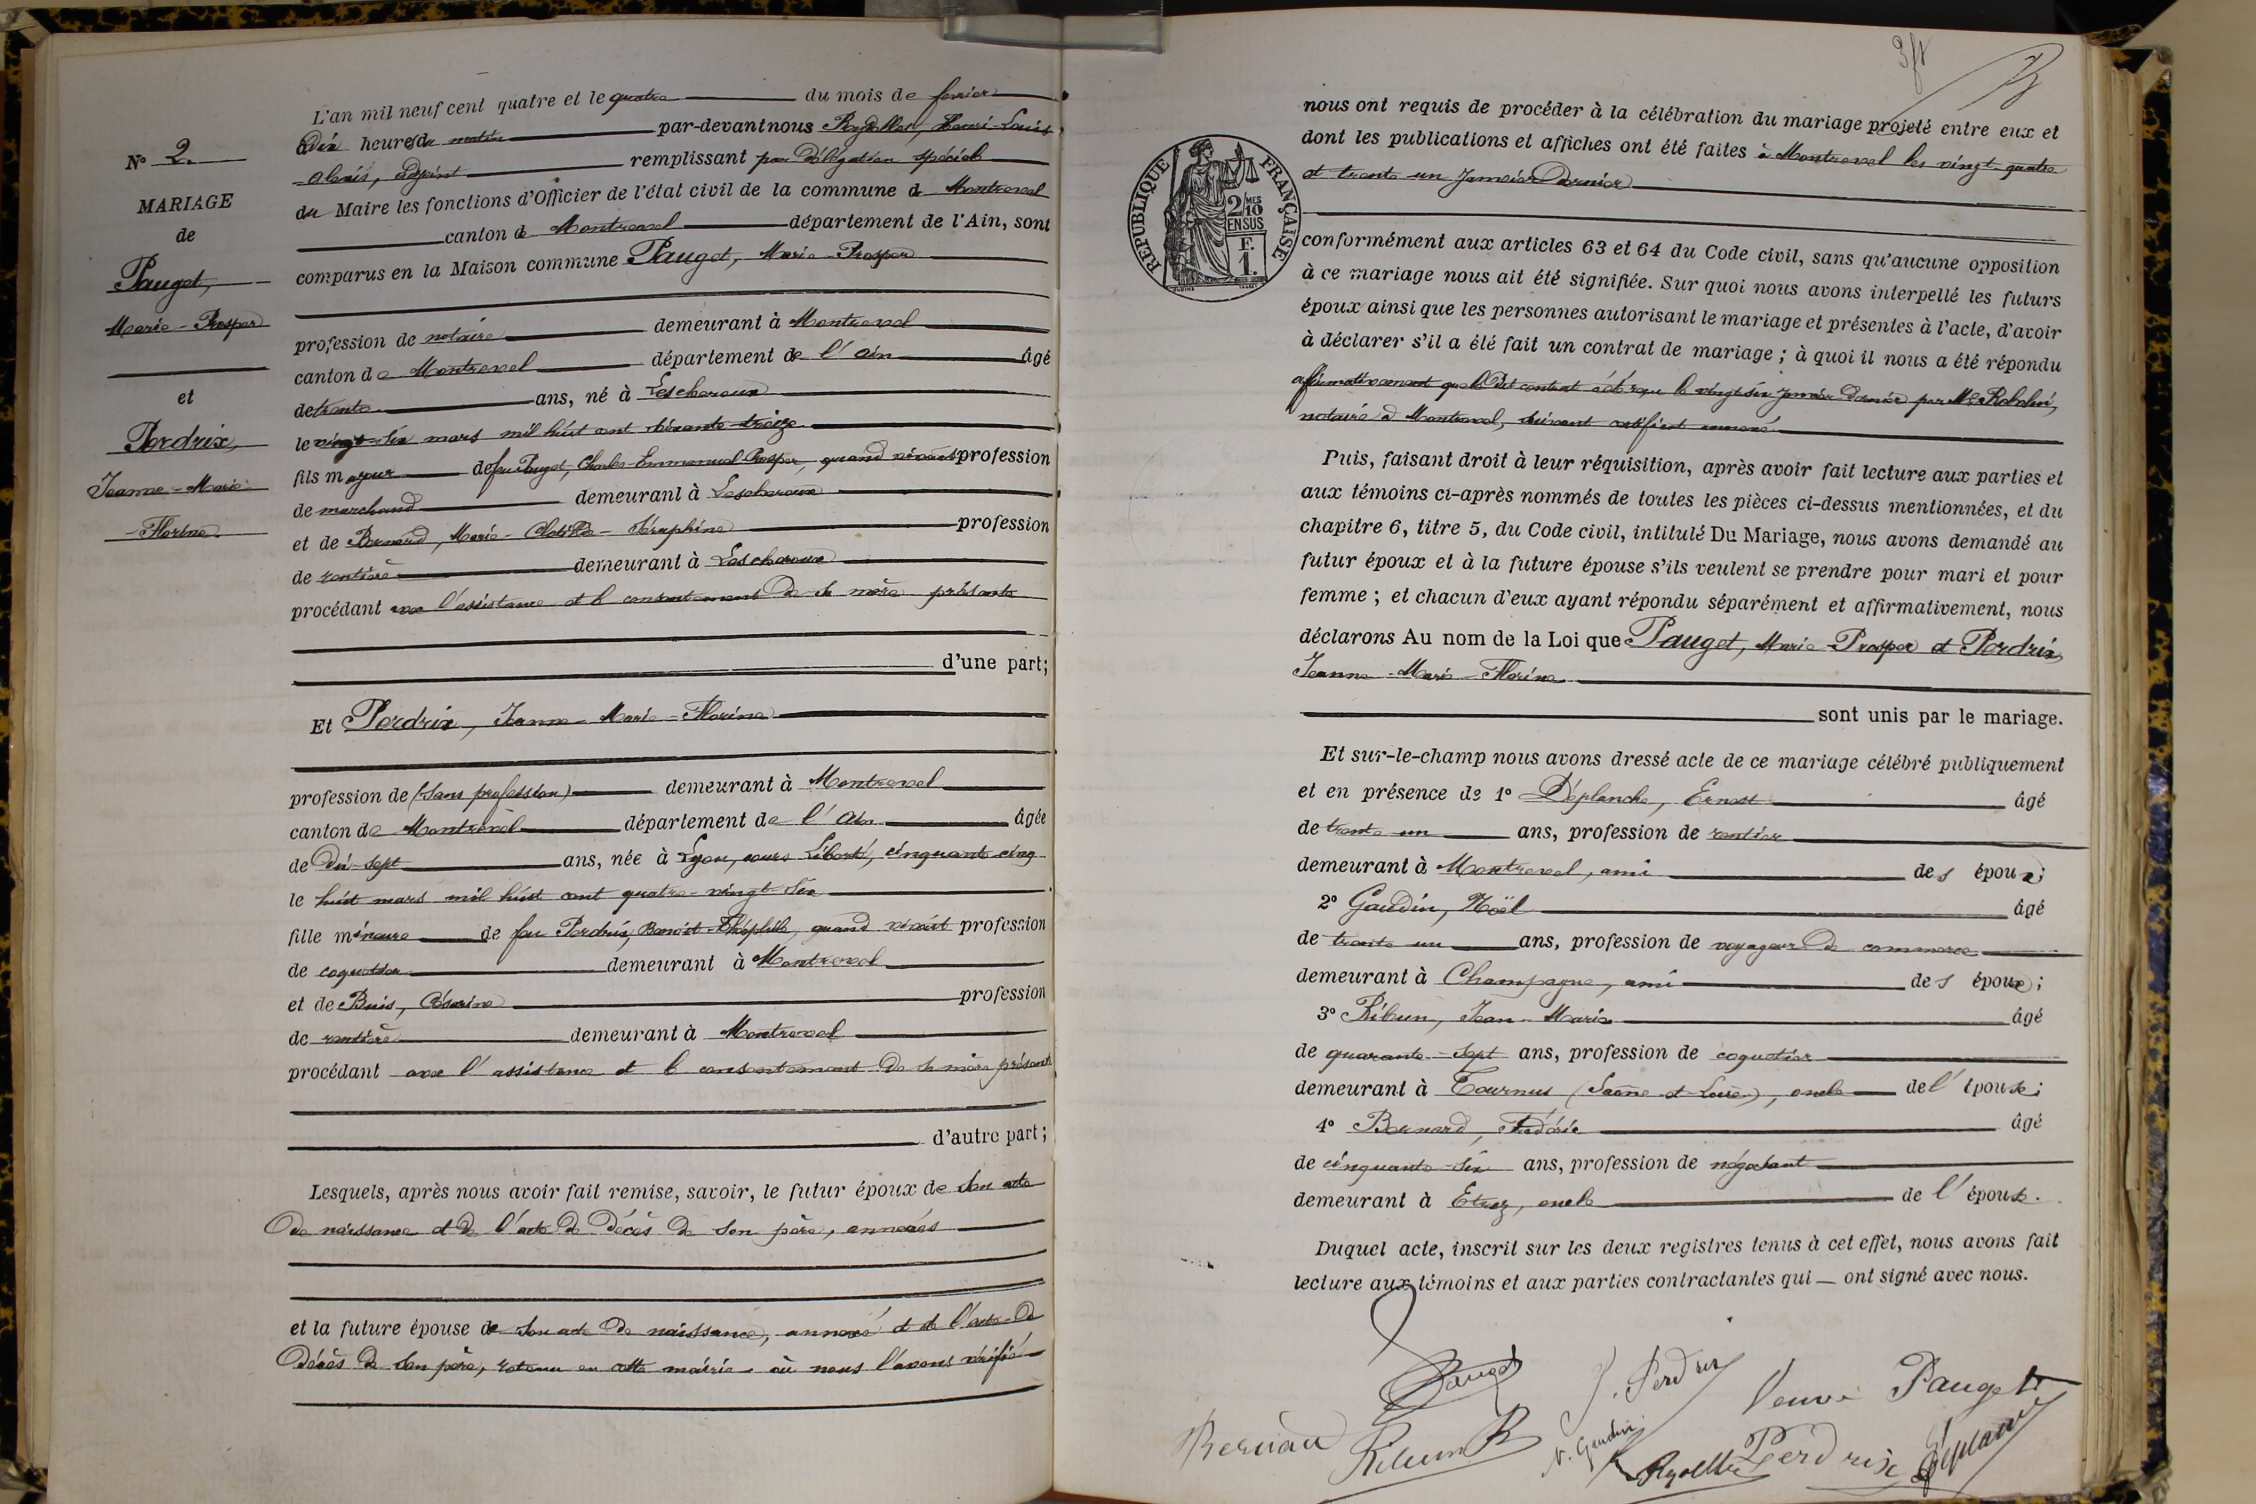 N° 2.
MARIAGE
de
Pauget,
Marie-Prosper
et
Perdrix,
Jeanne-Marie-
-Florine.
L'an mil neuf cent quatre et le quatre du mois de février
à dix heures du matin par-devant nous Henri-Louis
Alexis, adjoint remplissant par délégation spéciale
du Maire les fonctions d'Officier de l'état civil de la commune de Montrevel
canton de Montrevel département de l'Ain, sont
comparus en la Maison commune Pauget, Marie-Prosper
profession de notaire demeurant à Montrevel
canton de Montrevel département de l'Ain âgé
de trente ans, né à Lescheroux
le vingt-six mars mil huit cent soixante-treize
fils majeur de feu Pauget, Charles-Emmanuel Prosper, quand vivait profession
de marchand demeurant à Lescheroux
et de Bernard, Marie-Clotilde-Séraphine profession
de rentière demeurant à Lescheroux
procédant avec l'assistance et le consentement de sa mère présente
d'une part;
Et Perdrix, Jeanne-Marie-Florine
profession de (sans profession) demeurant à Montrevel
canton de Montrevel département de l'Ain âgée
de dix-sept ans, née à Lyon, cours Liberté, cinquante cinq
le huit mars mil huit cent quatre-vingt-six
fille mineure de feu Perdrix, Benoît-Théophile, quand vivait profession
de coquetier demeurant à Montrevel
et de Buis, Césarine profession
de rentière demeurant à Montrevel
procédant avec l'assistance et le consentement de sa mère présente
d'autre part;
Lesquels, après nous avoir fait remise, savoir, le futur époux de son acte
de naissance et de l'acte de décès de son père, annexés
et la future épouse de son acte de naissance, annexé et de l'acte de
décès de son père, retenu en cette mairie où nous l'avons vérifié
REPUBLIQUE FRANÇAISE
2/10 MES
EN SUS
F.
1.
nous ont requis de procéder à la célébration du mariage projeté entre eux et
dont les publications et affiches ont été faites à Montrevel les vingt-quatre
et trente un janvier dernier
conformément aux articles 63 et 64 du Code civil, sans qu'aucune opposition
à ce mariage nous ait été signifiée. Sur quoi nous avons interpellé les futurs
époux ainsi que les personnes autorisant le mariage et présentes à l'acte, d'avoir
à déclarer s'il a été fait un contrat de mariage; à quoi il nous a été répondu
affirmativement que le dit contrat a été reçu le vingt-six janvier dernier par Me
notaire à Montrevel, suivant certificat annexé.
Puis, faisant droit à leur réquisition, après avoir fait lecture aux parties et
aux témoins ci-après nommés de toutes les pièces ci-dessus mentionnées, et du
chapitre 6, titre 5, du Code civil, intitulé Du Mariage, nous avons demandé au
futur époux et à la future épouse s'ils veulent se prendre pour mari et pour
femme; et chacun d'eux ayant répondu séparément et affirmativement, nous
déclarons Au nom de la Loi que Pauget, Marie-Prosper et Perdrix
Jeanne-Marie-Florine
sont unis par le mariage.
Et sur-le-champ nous avons dressé acte de ce mariage célébré publiquement
et en présence de 1° Déplanche, Ernest âgé
de trente un ans, profession de rentier
demeurant à Montrevel, ami des époux;
2° Gaudin, Noël âgé
de trente un ans, profession de voyageur de commerce
demeurant à Champagne, ami des époux;
3° Ribun, Jean-Marie âgé
de quarante-sept ans, profession de coquetier
demeurant à Tournus (Saône-et-Loire), oncle de l'épouse;
4° Bernard, Frédéric âgé
de cinquante-six ans, profession de négociant
demeurant à Etrez, oncle de l'épouse.
Duquel acte, inscrit sur les deux registres tenus à cet effet, nous avons fait
lecture aux témoins et aux parties contractantes qui — ont signé avec nous.
Pauget
J. Perdrix
Veuve Pauget
Bernard
Ribun
N. Gaudin
Perdrix
Déplanche